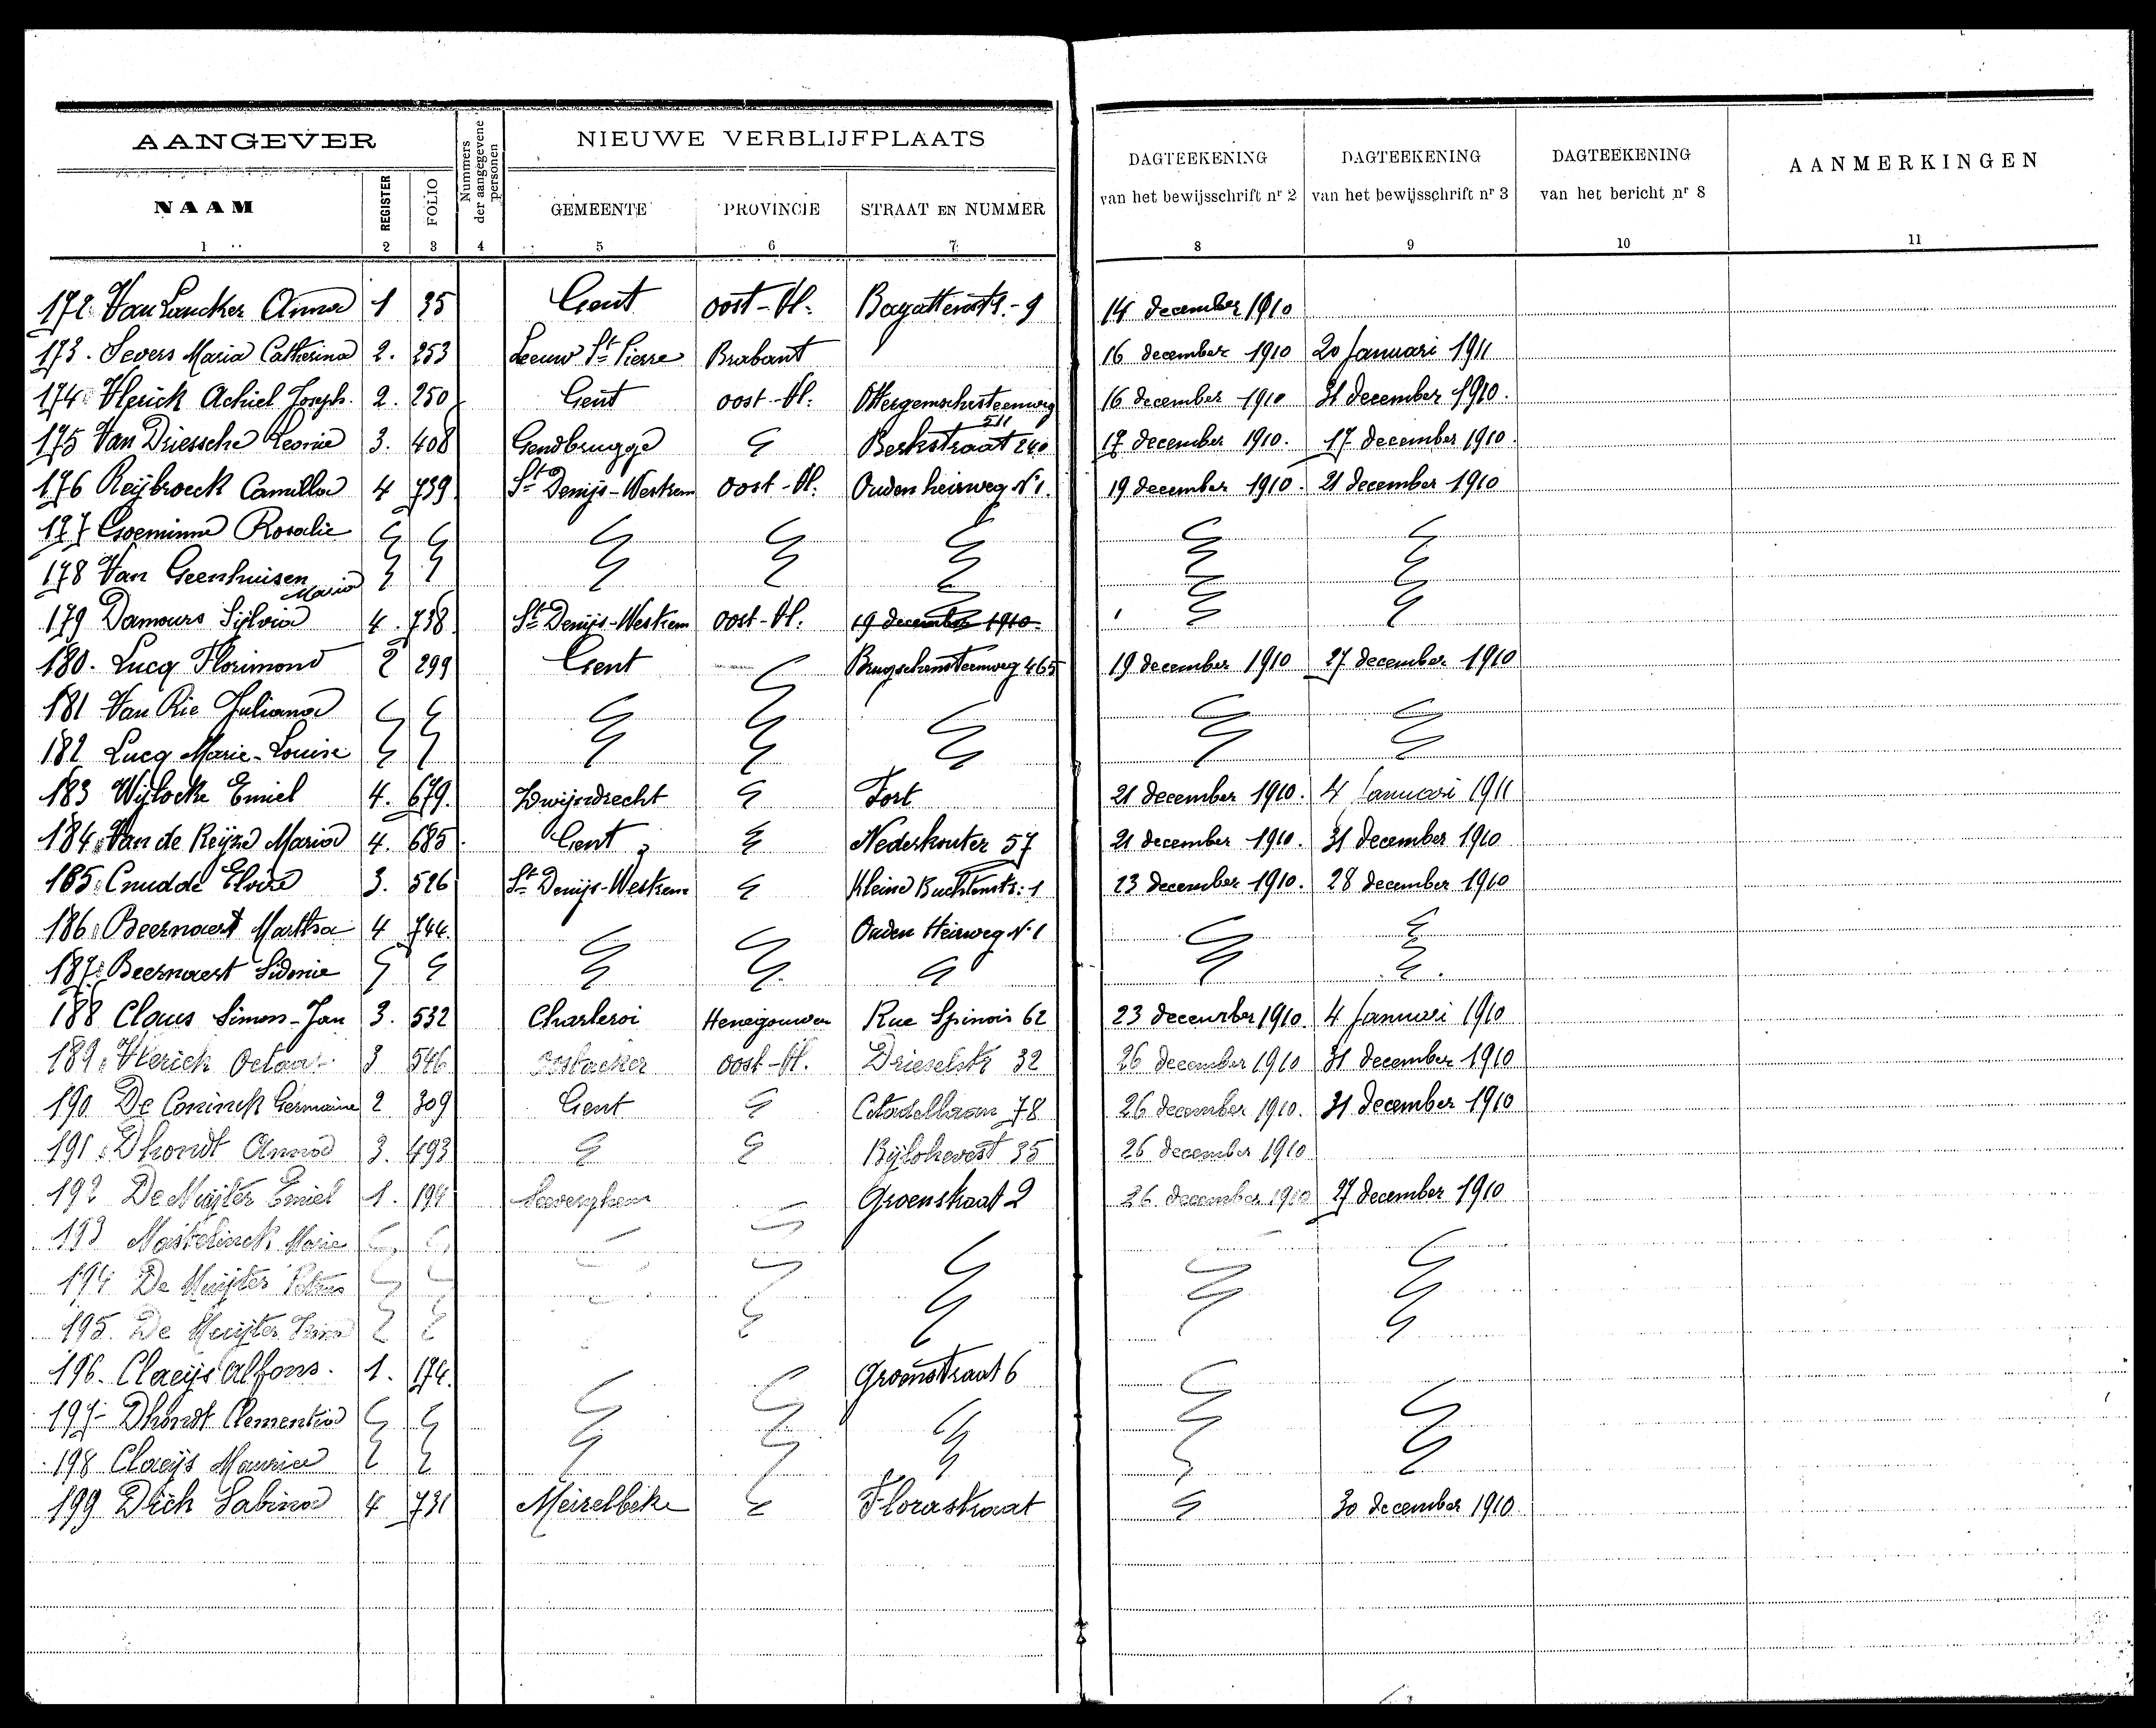 AANGEVER
Nummers der aangegevene personen
NIEUWE VERBLIJFPLAATS
DAGTEEKENING van het bewijsschrift nr 2
DAGTEEKENING van het bewijsschrift nr 3
DAGTEEKENING van het bericht nr 8
AANMERKINGEN
NAAM REGISTER FOLIO GEMEENTE PROVINCIE STRAAT EN NUMMER
1 2 3 4 5 6 7 8 9 10 11
172. Van Lancker Anna 1 35 Gent oost-Vl. 9 14 december 1910
173. Severs Maria Catherina 2. 253 Leeuw St Pierre Brabant 16 december 1910 20 Januari 1911
174 Vlerick Achiel Joseph. 2. 250 Gent oost-Vl. Ottergemschesteenweg 511 16 december 1910 31 december 1910.
175 Van Driessche Leonie 3. 408 Gendbrugge " 240 17 december 1910. 17 december 1910.
176 Reijbroeck Camilla 4 739 St Denijs-Westrem oost-Vl. Ouden heirweg N°1. 19 december 1910. 21 december 1910
177 Goeminne Rosalie " " " " " " "
178 Van Geenhuisen Maria " " " " " " "
179 Damours Sijlvia 4. 738 St Denijs-Westrem oost-Vl. 19 december 1910 " "
180. Lucq Florimond 2 299 Gent " Brugschensteenweg 465 19 december 1910 27 december 1910
181 Van Rie Juliana " " " " " " "
182 Lucq Marie-Louise " " " " " " "
183 Wijlocke Emiel 4. 679. Zwijndrecht " Fort 21 december 1910. 4 Januari 1911
184. Van de Keijze Maria 4. 685 Gent " Nederkouter 57 21 december 1910. 31 december 1910
185. Cnudde Elvire 3. 526 St Denijs-Westrem " Kleine Buchtenstr: 1 23 december 1910. 28 december 1910
186. Beernaert Martha 4 744. " " Ouden Heirweg N°1 " "
187. Beernaert Sidonie " " " " " " "
188 Claus Simon-Jan 3. 532 Charleroi Henegouwen Rue Spinois 62 23 december 1910. 4 Januari 1910
189. Vlerick Octaaf 3 546 oostacker oost-Vl. Drieselstr 32 26 december 1910 31 december 1910
190 De Coninck Germaine 2 309 Gent " Citadellaan 78 26 december 1910. 31 december 1910
191. Dhondt Anna 3. 493 " " Bijlokevest 35 26 december 1910
192 De Muijter Emiel 1. 194 Seeverghem " Groenstraat 2 26 december 1910 27 december 1910
193 Mastelinck Marie " " " " " "
194 De Muijter Petrus " " " " " " "
195. De Muijter " " " " " "
196. Claeijs Alfons. 1. 174. " Groenstraat 6 "
197 Dhondt Clementia " " " " " " "
198 Claeijs Maurice " " " " " " "
199 Dick Sabina 4 731 Meirelbeke " Florastraat " 30 december 1910